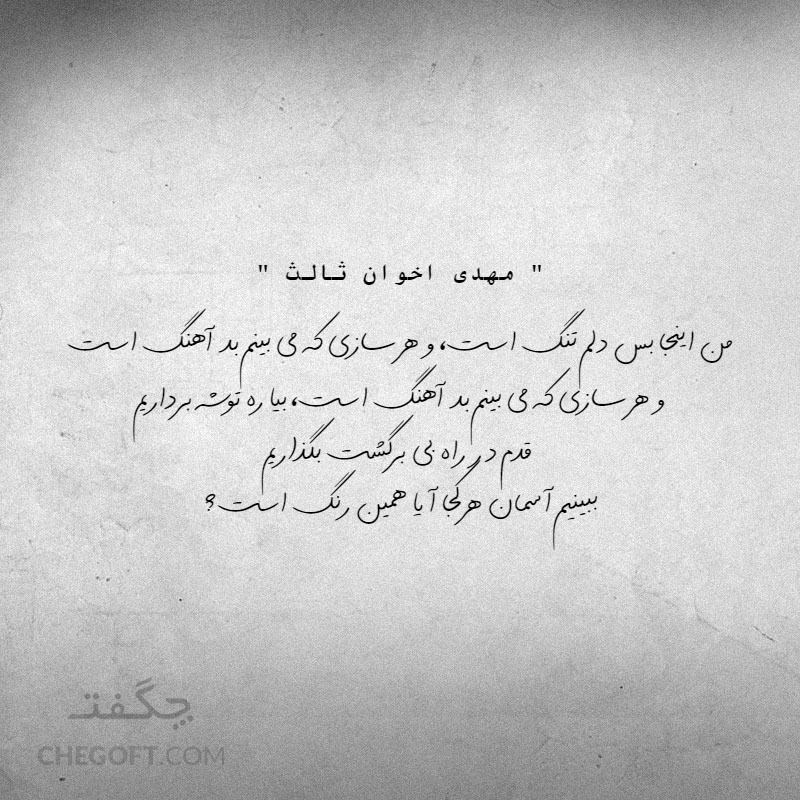 " مهدی اخوان ثالث "
من اینجا بس دلم تنگ است، و هر سازی که می بینم بد آهنگ است
و هر سازی که می بینم بد آهنگ است، بیا ره توشه برداریم
قدم در راه بی برگشت بگذاریم
ببینیم آسمان هر کجا آیا همین رنگ است؟
چگفت
CHEGOFT.COM